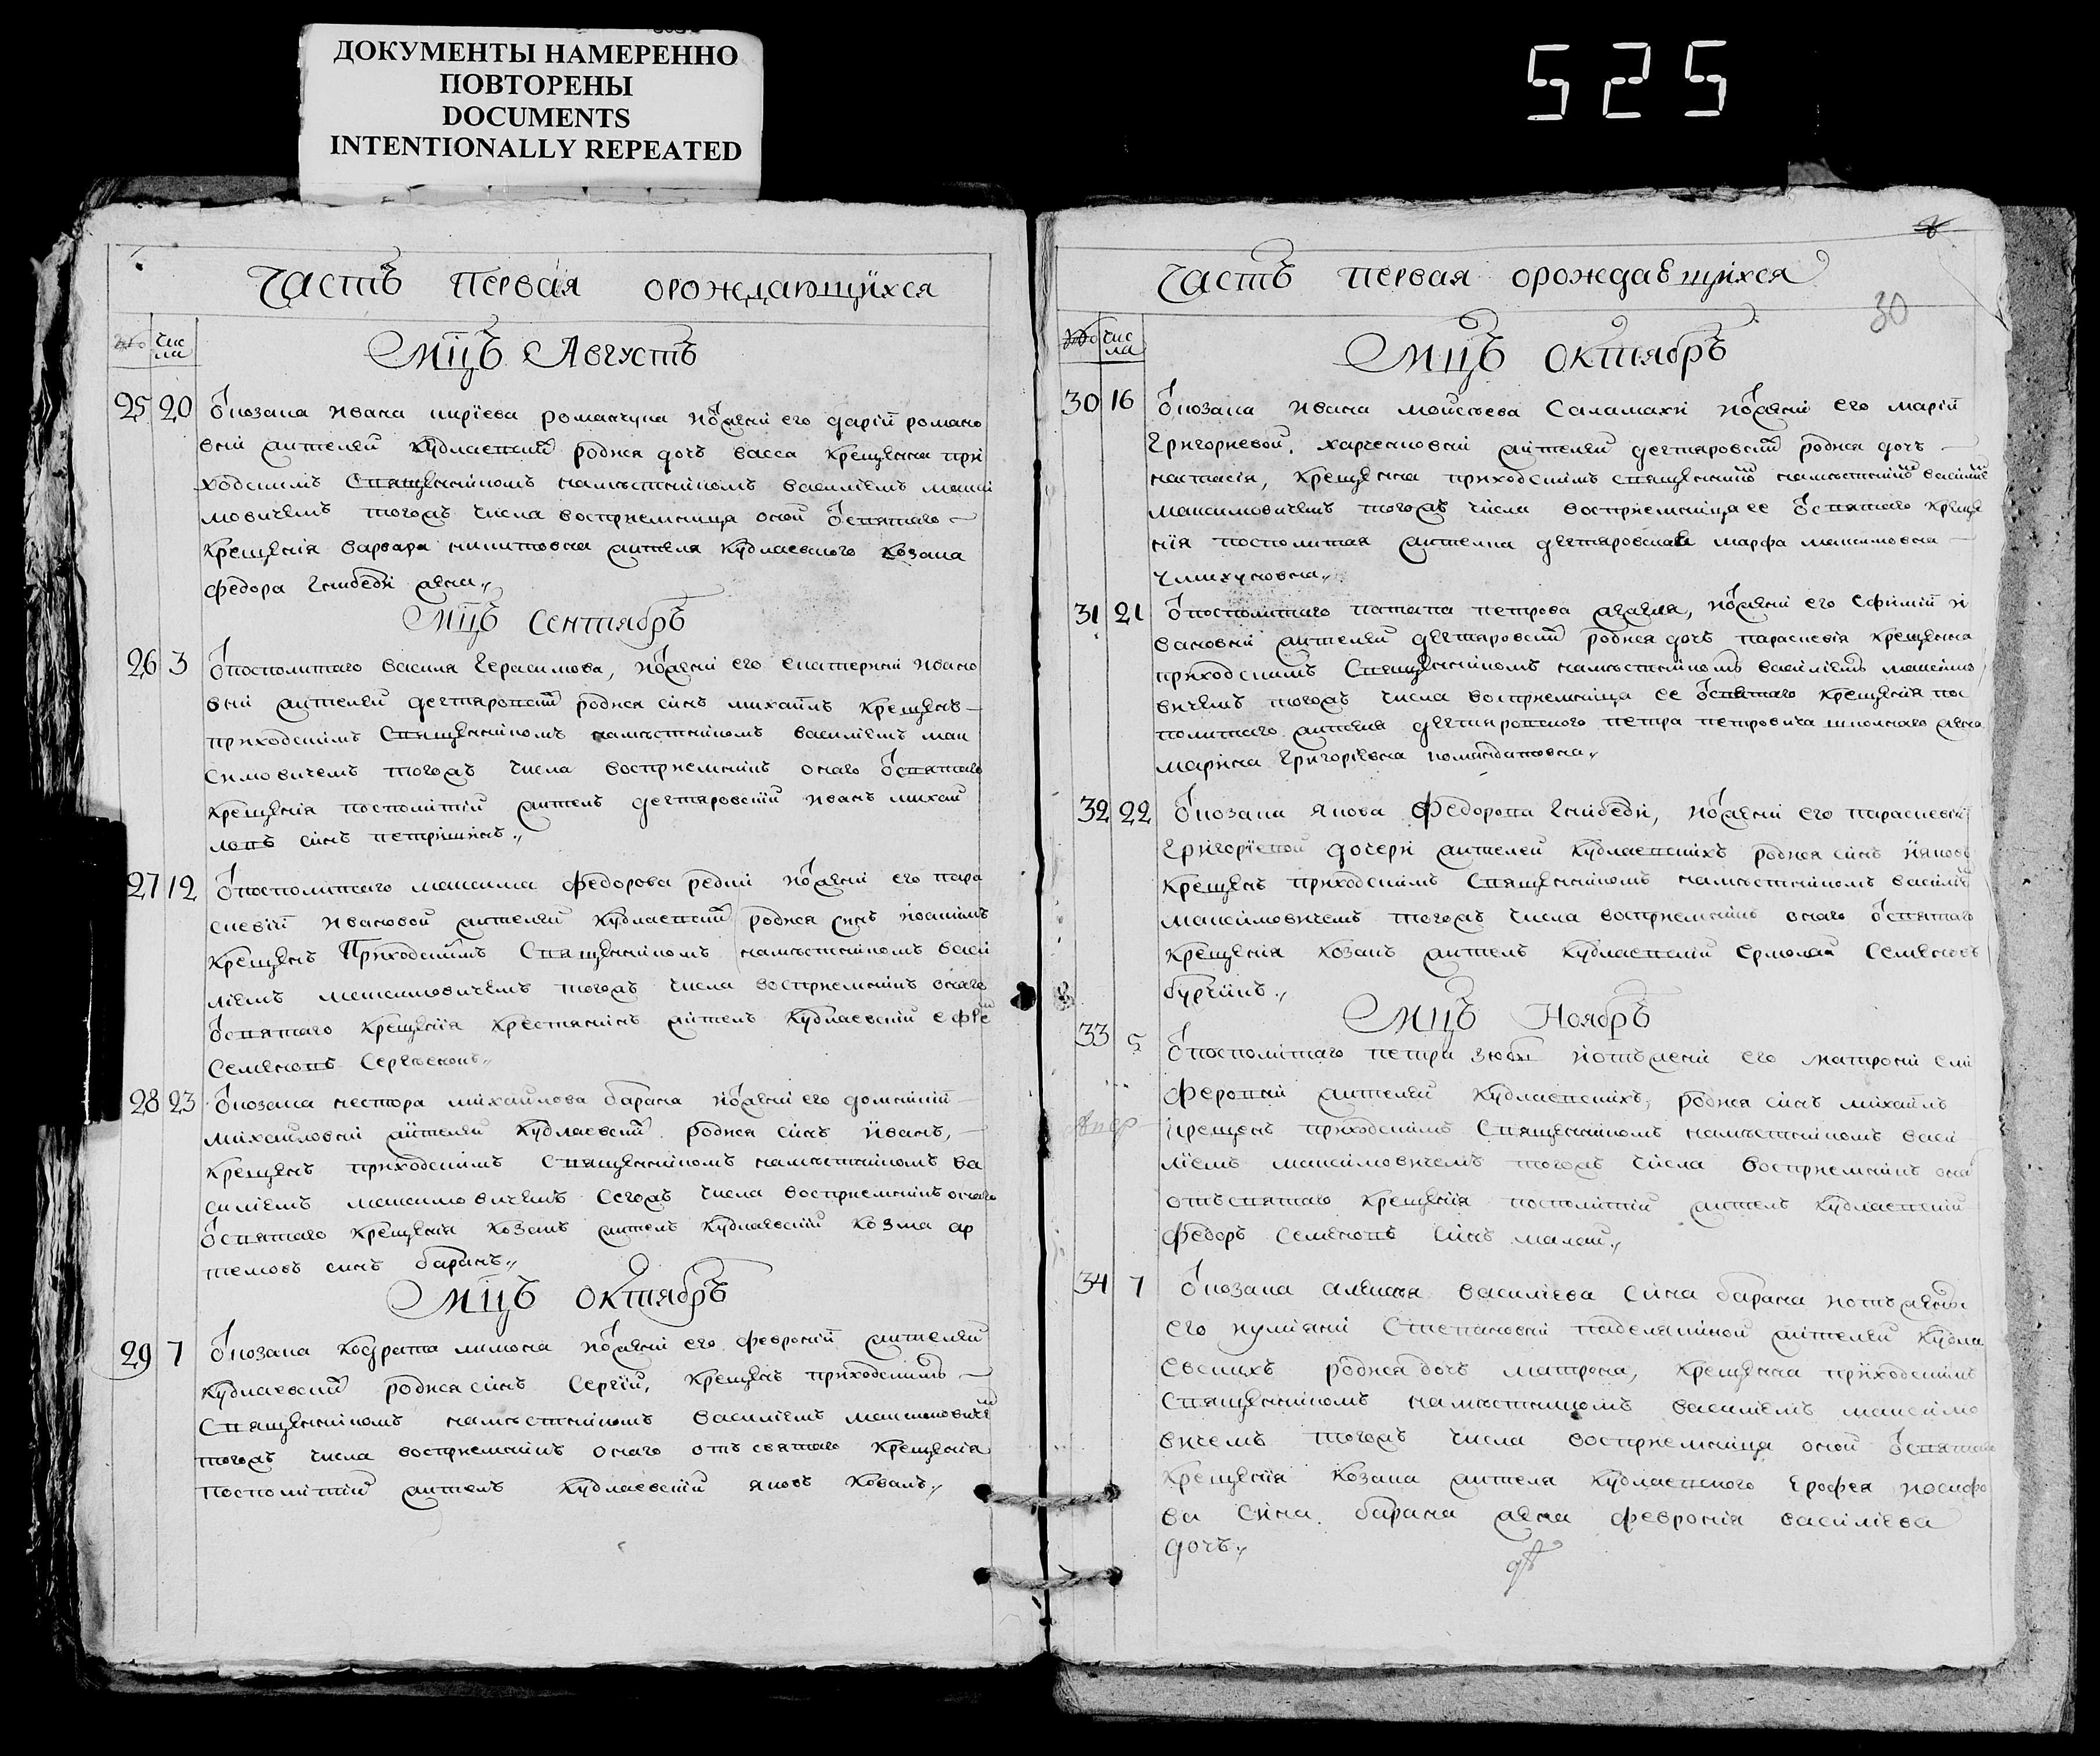 ДОКУМЕНТЫ НАМЕРЕННО
ПОВТОРЕНЫ
DOCUMENTS
INTENTIONALLY REPEATED
525
Часть первая орождающихся
чис
ла
Мцъ Августъ
25 20 Ѿ козака ивана кирїева романчука ижены его дарїи романо
вны жителей кудлаевских родися дочь васса крещенна при
ходскимъ священникомъ намѣстникомъ василїемъ макси
мовичемъ тогожъ числа восприемница оной ѿ святаго
крещенїя варвара никитовна жителя кудлаевского козака
федора гнибеды жена
Мцъ Сентябръ
26 3 Ѿ посполитаго василя герасимова, ижены его екатерины ивано
вны жителей дегтяровских родися синъ михаилъ крещенъ
приходскимъ священникомъ намѣстникомъ василїемъ мак
симовичемъ тогожъ числа восприемникъ онаго ѿ святаго
крещенїя посполитїй житель дегтяровскїй иванъ михай
ловъ синъ петришинъ
27 12 Ѿ посполитаго максима федорова редки ижены его пара
скевїи ивановой жителей кудлаевских родися синъ иоакимъ
крещенъ приходскимъ священникомъ намѣстникомъ васи
лїемъ максимовичемъ тогожъ числа восприемникъ онаго
ѿ святаго крещенїя крестянинъ житель кудлаевскїй ефре
семеновъ
28 23 Ѿ козака нестора михайлова барана ижены его домникїи
михайловны жителей кудлаевских родися синъ иванъ,
крещенъ приходскимъ священникомъ намѣстникомъ ва
силїемъ максимовичемъ сегожъ числа восприемникъ онаго
ѿ святаго крещенїя козакъ житель кудлаевскїй козма ар
темовъ синъ баранъ
Мцъ Октябръ
29 7 Ѿ козака кодрата лимона ижены его февронїи жителей
кудлаевских родися синъ сергїй, крещенъ приходскимъ
священникомъ намѣстникомъ василїемъ максимовиче
тогожъ числа восприемникъ онаго отъ святаго крещенїя
посполитїй житель кудлаевскїй яковъ коваль
Часть первая орождавшихся
30
чис
ла
Мцъ Октябръ
30 16 Ѿ козака ивана мойсѣева саламахи ижены его марїи
григориевой харченковны жителей дегтяровских родися дочь
настасїя, крещенна приходскимъ священнико намѣстнико василїе
максимовичемъ тогожъ числа восприемница ее ѿ святаго креще
нїя посполитая жителка дегтяровская марфа максимовна
31 21 Ѿ посполитаго петрова ижены его ефимїи и
вановны жителей дегтяровских родися дочь параскевїя крещенна
приходскимъ священникомъ намѣстникомъ василїемъ максимо
вичемъ тогожъ числа восприемница ее ѿ святаго крещенїя пос
политаго жителя дегтяровского петра петровича жена
марина григорїевна
32 22 Ѿ козака якова федорова гнибеды, ижены его параскевїи
григорїевой дочери жителей кудлаевскихъ родися синъ
крещенъ приходскимъ священникомъ намѣстникомъ василїе
максимовичемъ тогожъ числа восприемникъ онаго ѿ святаго
крещенїя козакъ житель кудлаевскїй ермолай семеновъ
Мцъ Ноябръ
33 5 Ѿ посполитаго петра зюбы иотъжены его матроны ели
феровны жителей кудлаевскихъ, родися синъ михаилъ
крещенъ приходскимъ священникомъ намѣстникомъ васи
лїемъ максимовичемъ тогожъ числа восприемникъ она
отъ святаго крещенїя посполитїй житель кудлаевскїй
федоръ семеновъ синъ малай
34 7 Ѿ козака алексѣя василїева сина барана иотъжены
его степановны жителей кудла
евскихъ родися дочъ матрона, крещенна приходскимъ
священникомъ намѣстникомъ василїемъ максимо
вичемъ тогожъ числа восприемница оной ѿ святаго
крещенїя козака жителя кудлаевского ерофея иосифо
ва сина барана жена феврония василїева
дочъ